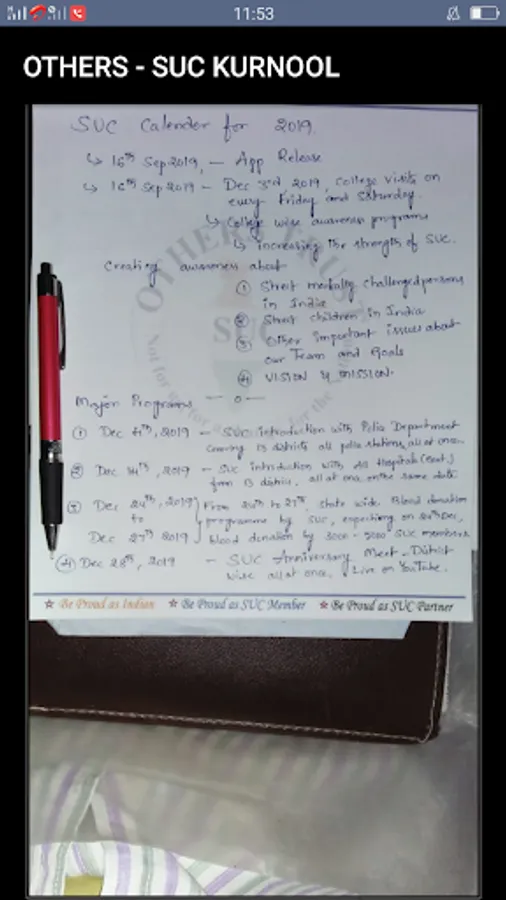 11:53
OTHERS - SUC KURNOOL
SUC Calender for 2019.
↳ 16th Sep 2019, - App Release
↳ 16th Sep 2019 - Dec 3rd 2019, College visits on
every Friday and Saturday.
↳ College wise awareness programs
↳ increasing the strength of SUC.
Creating awareness about
① Street mentally challenged persons
in India
② Street children in India
③ Other important issues about
our Team and Goals
④ VISION & MISSION.
Major Programs — o —
① Dec 4th, 2019 - SUC introduction with Police Department
Covering 13 districts all police stations, all at once.
② Dec 14th, 2019 - SUC introduction with All Hospitals (Govt.)
from 13 districts, all at once on the same date.
③ Dec 24th, 2019 From 24th to 27th, state wide Blood donation
to programme by SUC, expecting on 24th Dec,
Dec 27th 2019 blood donation by 3000 - 5000 SUC members
④ Dec 28th, 2019 - SUC Anniversary Meet - District
wise all at once. Live on YouTube.
OTHERS TRUST
SUC
★ Be Proud as Indian ★ Be Proud as SUC Member ★ Be Proud as SUC Partner